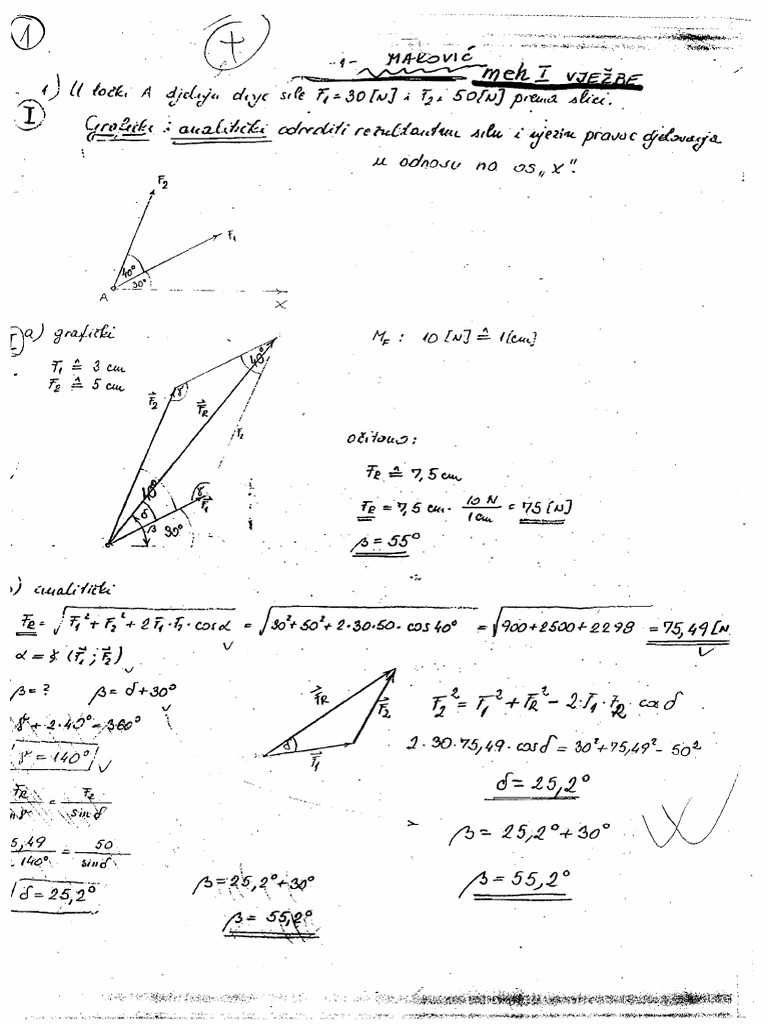 1
-1- MAKOVIĆ
meh I VJEŽBE
1) U točki A djeluju dvije sile F₁=30[N] i F₂=50[N] prema slici.
I
Grafički i analitički odrediti rezultantnu silu i njezin pravac djelovanja
u odnosu na os „x".
F₂
F₁
40°
30°
A
X
a) grafički
M_F : 10 [N] ≙ 1[cm]
F₁ ≙ 3 cm
F₂ ≙ 5 cm
40°
γ
F₂
F_R
F₂
40°
γ
F₁
δ
β
30°
očitano:
F_R ≙ 7,5 cm
F_R = 7,5 cm · 10 N / 1 cm = 75 [N]
β = 55°
) analitički
F_R = √(F₁² + F₂² + 2F₁·F₂·cosα) = √(30²+50²+2·30·50·cos40°) = √(900+2500+2298) = 75,49 [N
α = ∢ (F₁ ; F₂)
β = ? β = δ + 30°
2γ + 2·40° = 360°
γ = 140°
F_R / sinγ = F₂ / sinδ
5,49 / 140° = 50 / sinδ
δ = 25,2°
β = 25,2° + 30°
β = 55,2°
F_R
F₂
δ
F₁
F₂² = F₁² + F_R² - 2·F₁·F_R cosδ
2·30·75,49·cosδ = 30²+75,49²-50²
δ = 25,2°
β = 25,2° + 30°
β = 55,2°